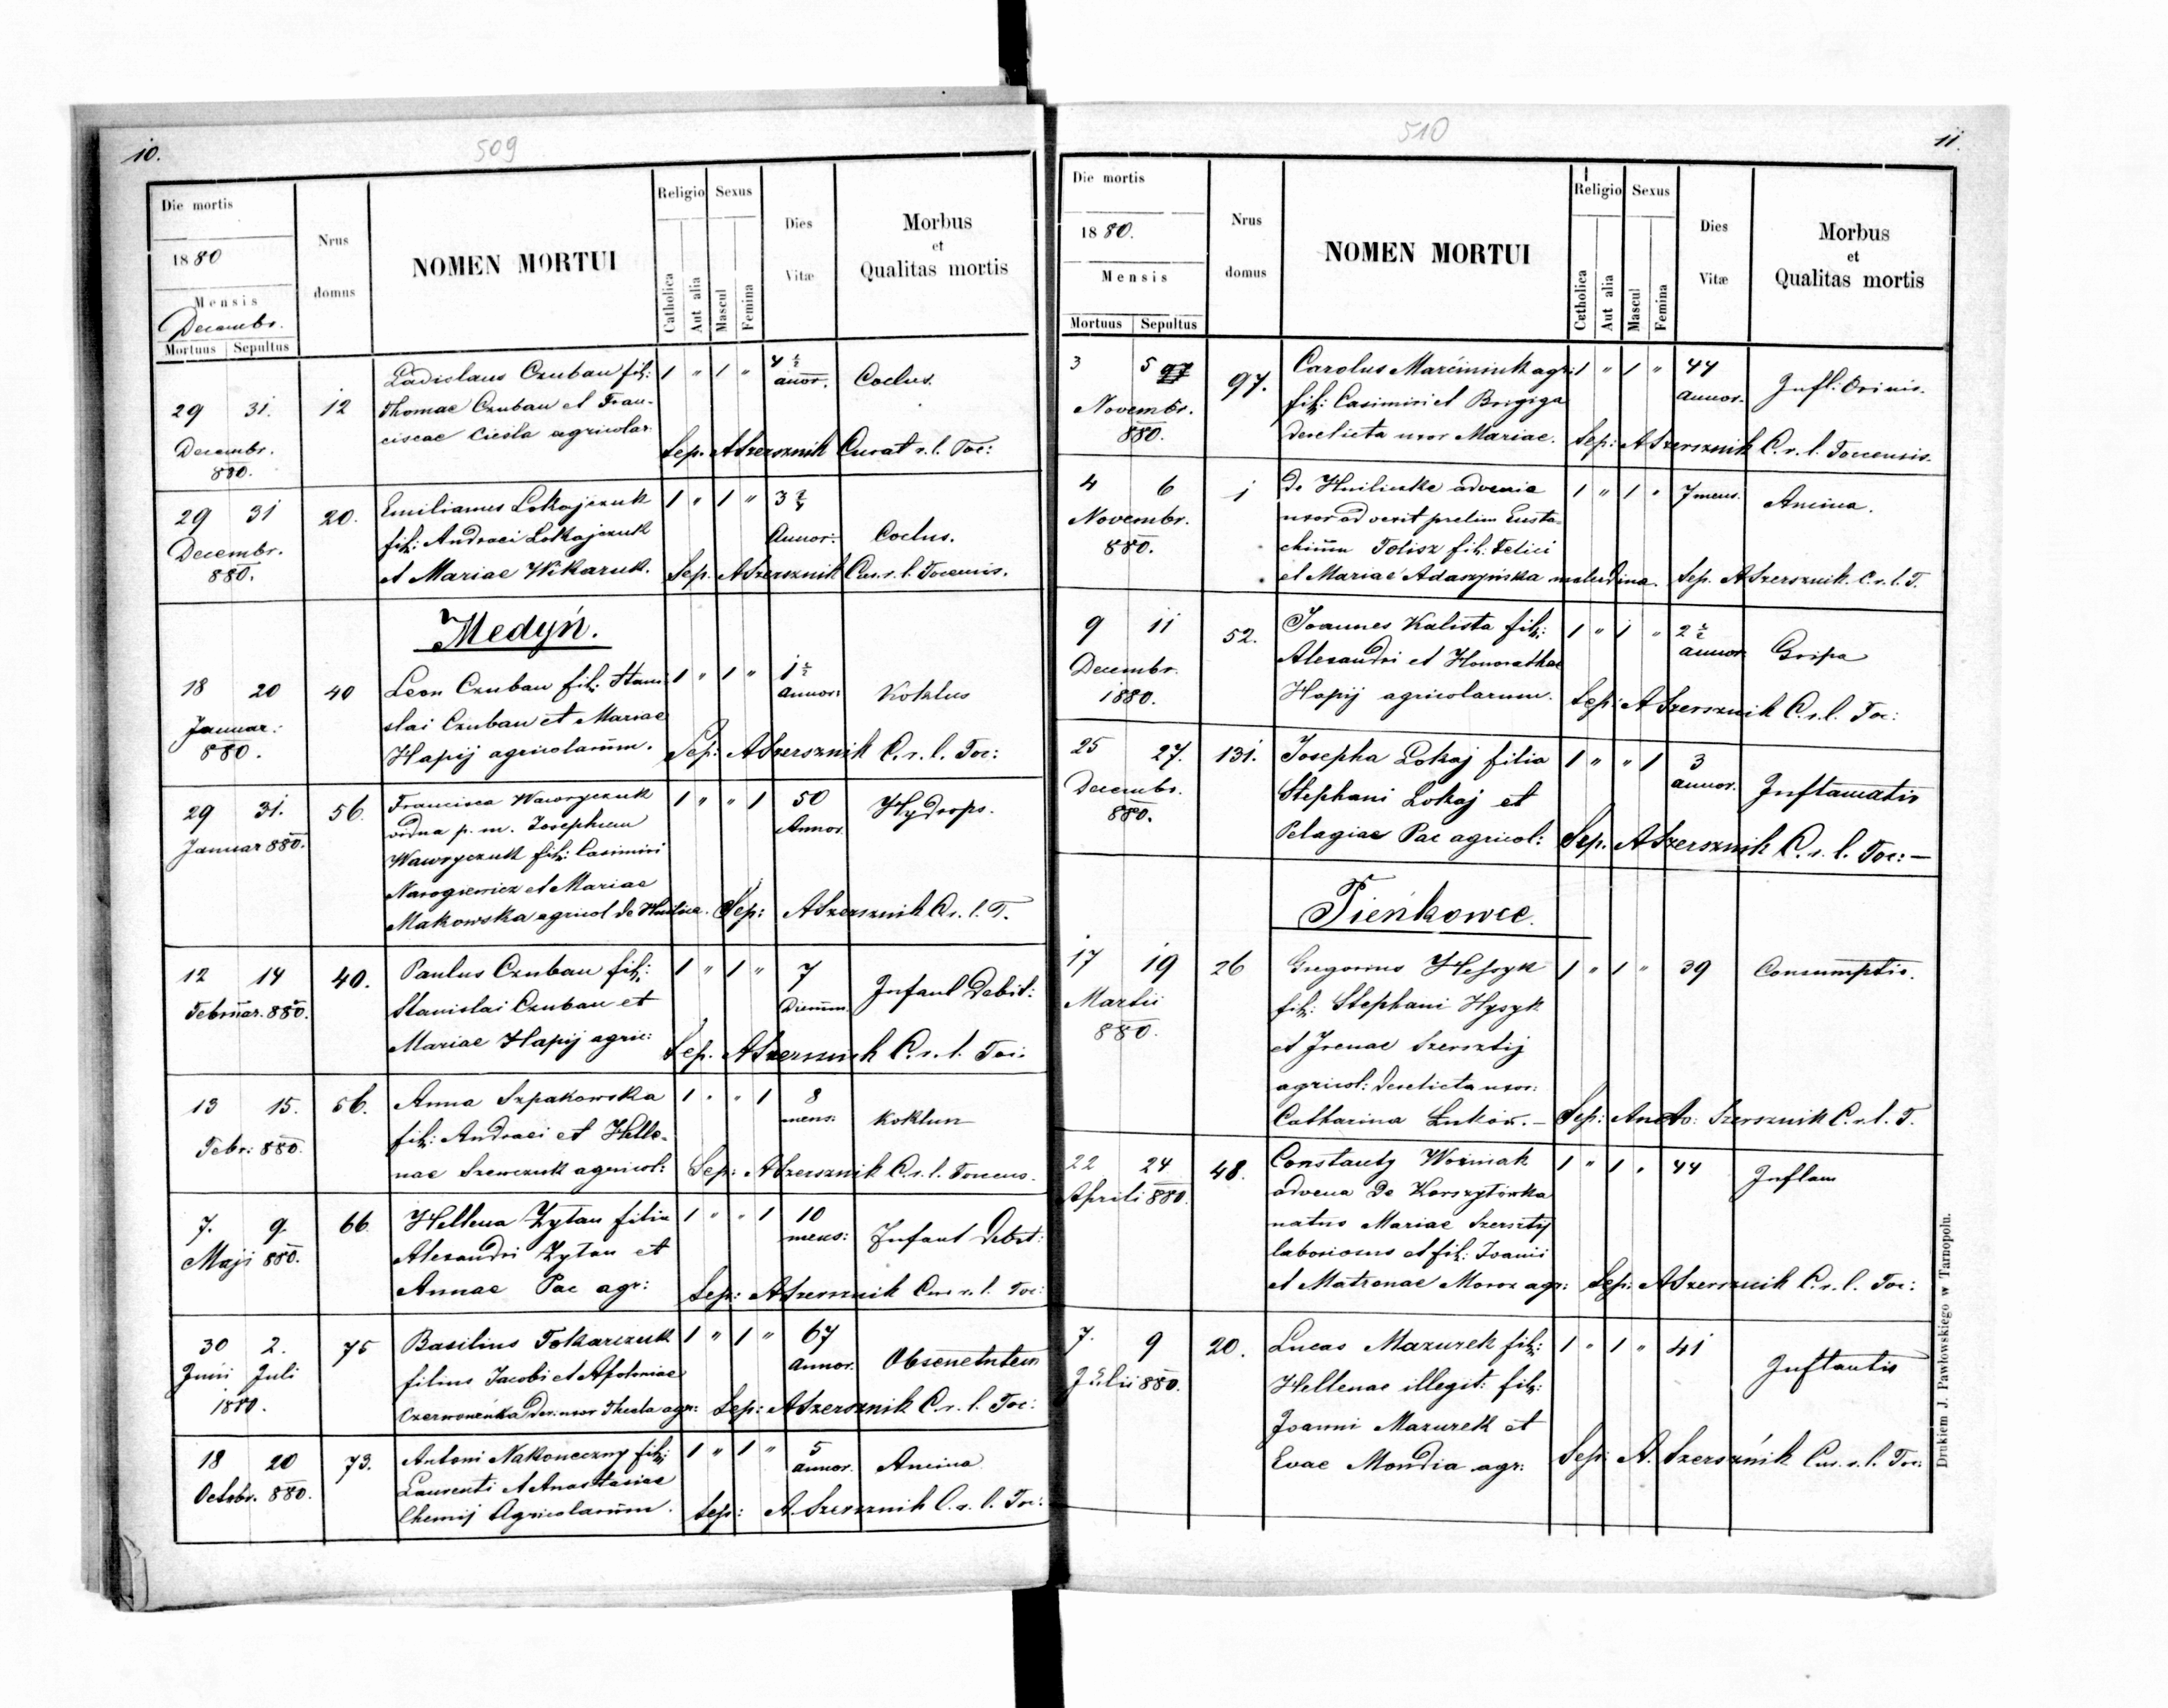 10.
509
Die mortis
1880
Mensis
Decembr.
Mortuus Sepultus
Nrus domus
NOMEN MORTUI
Religio
Catholica
Aut alia
Sexus
Mascul
Femina
Dies Vitæ
Morbus
et
Qualitas mortis
Ladislaus Czuban fil: 1 " 1 " 4 ½ annor. Coclus.
29 31. 12 Thomae Czuban et Fran-
Decembr. ciscae Ciesla agricolar.
880. Sep. ASzersznik Curat r. l. Toc:
29 31 20. Emilianus Lokajczuk 1 " 1 " 3
Decembr. fil: Andraei Lokajczuk Annor: Coclus.
880. et Mariae Wikaruk. Sep. ASzersznik Cur. r. l. Tocensis.
Medyń.
18 20 40 Leon Czuban fil: Stani- 1 " 1 " 1 ½ annor: Koklus
Januar. slai Czuban et Mariae
880. Hapij agricolarum. Sep: ASzersznik C. r. l. Toc:
29 31. 56. Francisca Wawryczuk 1 " " 1 50 Annor. Hydrops.
Januar 880. vidua p. m. Josephum
Wawryczuk fil: Casimiri
et Mariae
Makowska agricol de Hnilice. Sep: ASzersznik C. r. l. T.
12 14 40. Paulus Czuban fil: 1 " 1 " 7 Dierum Infant Debit:
Februar. 880. Stanislai Czuban et
Mariae Hapij agric: Sep. ASzersznik C. r. l. Toc:
13 15. 56. Anna Szpakowska 1 " " 1 8 mens: Koklun
Febr: 880. fil: Andraei et Helle-
nae Szewczuk agricol: Sep: ASzersznik C. r. l. Tocens.
7. 9. 66 Hellena Zytan filia 1 " " 1 10 mens: Infant Debit:
Maji 880. Alexandri Zytan et
Annae Pac agr: Sep: ASzersznik Cur r. l. Toc:
30 2. 75 Basilius Tokarczuk 1 " 1 " 67 Annor. Obsenetutem
Juni Juli filius Jacobi et Apoloniae
1880. Czerwonenka Der: uxor Thecla agr: Sep: ASzersznik C. r. l. Toc:
18 20 73. Antoni Nakoneczny fil: 1 " 1 " 5 annor. Ancina
Octobr. 880. Laurenti et Anastasiae
Chemij Agricolarum. Sep: A. Szersznik C. r. l. Toc:
510
11.
Die mortis
1880.
Mensis
Mortuus Sepultus
Nrus domus
NOMEN MORTUI
Religio
Catholica
Aut alia
Sexus
Mascul
Femina
Dies Vitæ
Morbus
et
Qualitas mortis
3 5 97. Carolus Marciniuk agr: 1 " 1 " 44 annor. Infl:
Novembr. fil: Casimiri et Brigiga
880. Derelicta uxor Mariae. Sep: ASzersznik C. r. l. Tocensis.
4 6 1 De Hniliczke advenie 1 " 1 " 7 mens. Ancina.
Novembr. uxor
880. Tolisz fil: Felici
et Mariae Adaszyńska Sep. ASzersznik. C. r. l. T.
9 11 52. Joannes Kalista fil: 1 " 1 " 2 ½ annor. Gripa
Decembr. Alexandri et Honorathae
1880. Hapij agricolarum. Sep: ASzersznik C. r. l. Toc:
25 27. 131. Josepha Lokaj filia 1 " " 1 3 annor. Inflamatio
Decembr. Stephani Lokaj et
880. Pelagiae Pac agricol: Sep. ASzersznik C. r. l. Toc: —
Pieńkowce.
17 19 26 Gregorius Hesyk 1 " 1 " 39 Consumptio.
Martii fil: Stephani Hysyk
880. et Irenae Szersztij
agricol: Derelicta uxor:
Catharina Łuków. — Sep: Szersznik C. r. l. T.
22 24 48. Constanty Woźniak 1 " 1 " 44 Inflam
Aprili 880. advena De Korszyłówka
natus Mariae Szersztij
laboriosus et fil: Joanni
et Matronae Moroz agr: Sep: ASzersznik C. r. l. Toc:
7. 9 20. Lucas Mazurek fil: 1 " 1 " 41
Julii 880. Hellenae illegit: fil:
Joanni Mazurek et
Evae Mondia agr: Sep: A. Szersznik Cur. r. l. Toc:
Drukiem J. Pawłowskiego w Tarnopolu.